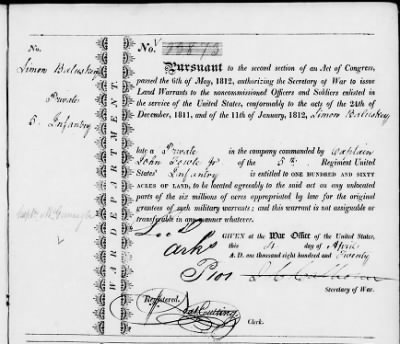 No.
Simon Baluskey
Private
5. Infantry
WAR DEPARTMENT.
No.
Pursuant to the second section of an Act of Congress,
passed the 6th of May, 1812, authorizing the Secretary of War to issue
Land Warrants to the noncommissioned Officers and Soldiers enlisted in
the service of the United States, conformably to the acts of the 24th of
December, 1811, and of the 11th of January, 1812, Simon Baluskey
late a Private in the company commanded by Captain
John of the 5th Regiment United
States' Infantry is entitled to ONE HUNDRED AND SIXTY
ACRES OF LAND, to be located agreeably to the said act on any unlocated
parts of the six millions of acres appropriated by law for the original
grantees of such military warrants; and this warrant is not assignable or
transferable in any manner whatever.
GIVEN at the War Office of the United States,
this day of April
A. D. one thousand eight hundred and Twenty
Arks
J. C. Calhoun
Secretary of War.
Registered.
Cutting
Clerk.